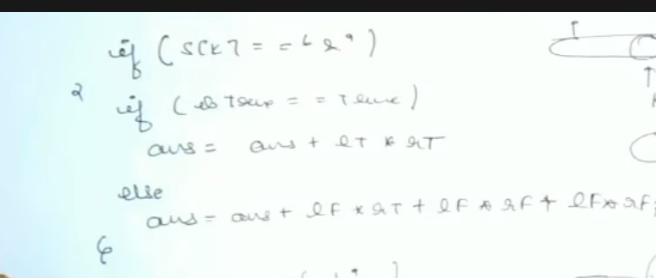 if (s[k] == '&')
{ if (isTrue == True)
ans = ans + lT * rT
else
ans = ans + lF * rT + lF * rF + lF * rF;
}